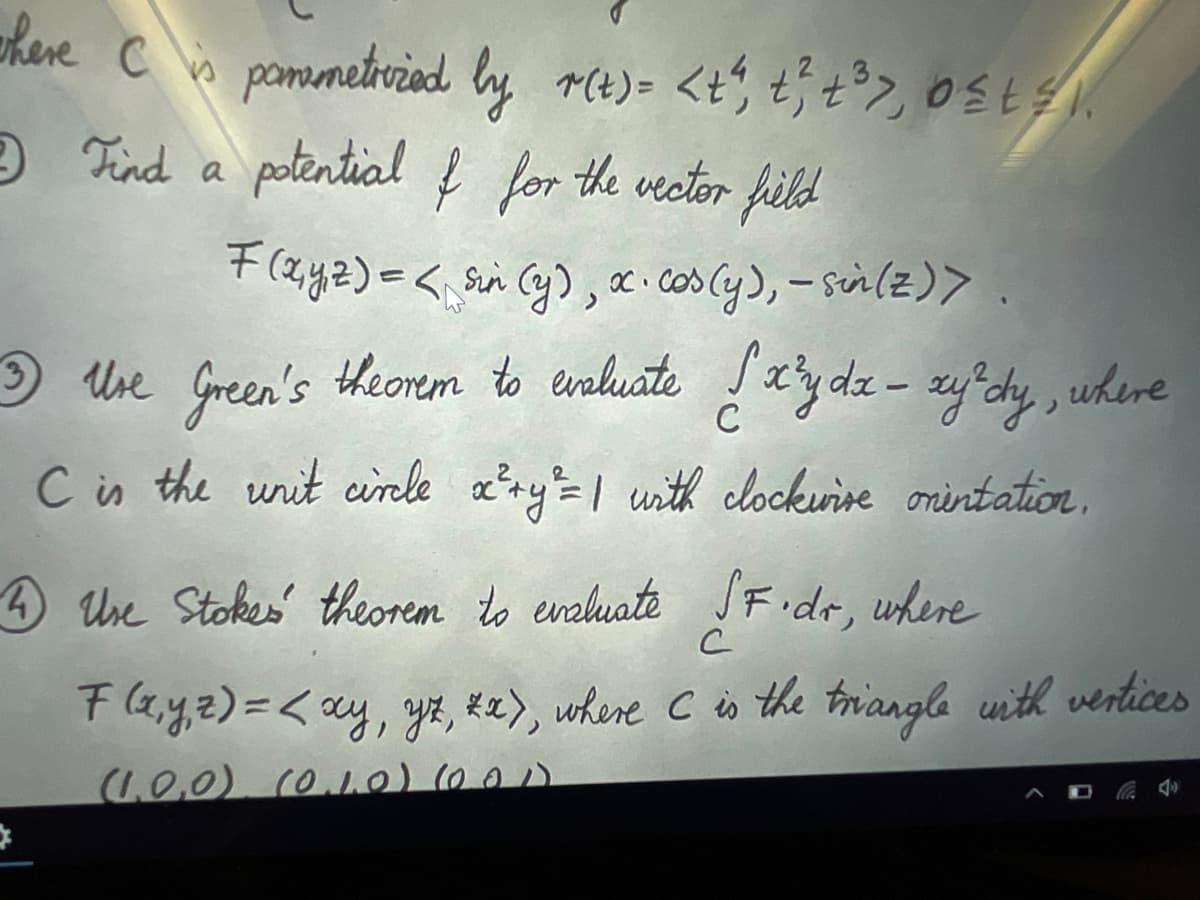 where C is parametrized by r(t) = <t⁴, t², t³>, 0 ≤ t ≤ 1.
② Find a potential f for the vector field
F(x,y,z) = < sin(y), x·cos(y), −sin(z)>.
③ Use Green's theorem to evaluate ∫_C x²y dx − xy² dy, where
C is the unit circle x²+y²=1 with clockwise orientation.
④ Use Stokes' theorem to evaluate ∫_C F·dr, where
F(x,y,z) = <xy, yz, zx>, where C is the triangle with vertices
(1,0,0) (0,1,0) (0,0,1)